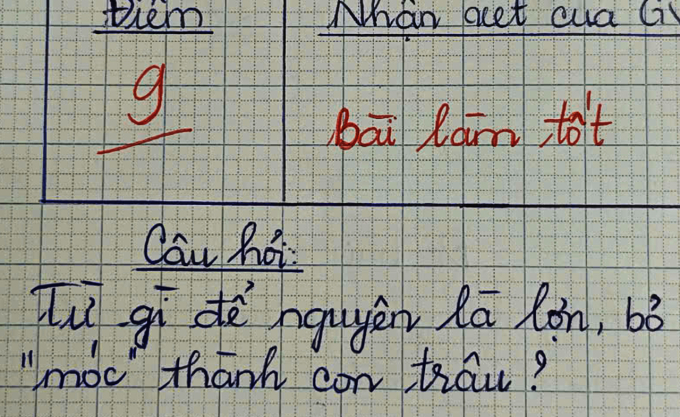 Điểm
Nhận xét của GV
9
Bài làm tốt
Câu hỏi:
Từ gì để nguyên là lớn, bỏ
"móc" thành con trâu?